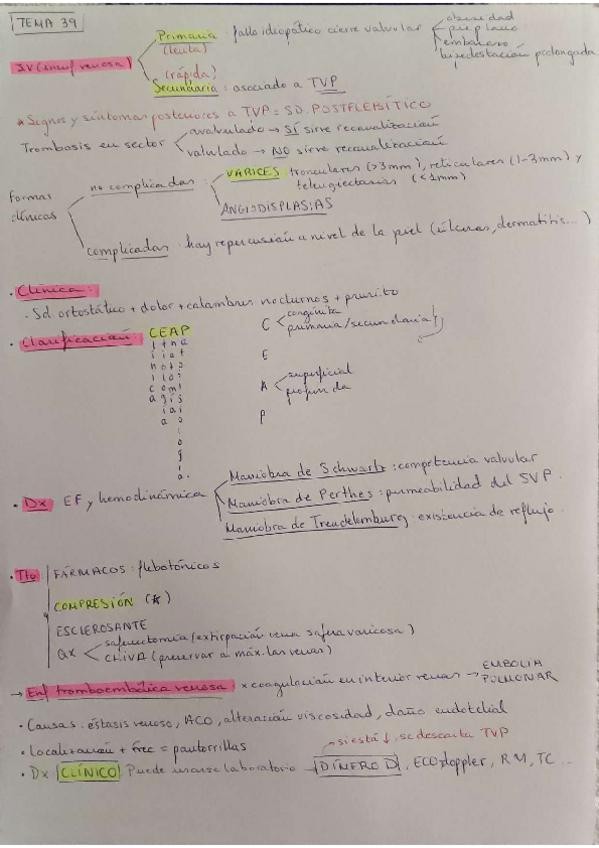 TEMA 39
I.V (insuf venosa)
Primaria (lenta) : fallo idiopático cierre valvular
obesidad
pie plano
embarazo
bipedestación prolongada
(rápida)
Secundaria : asociado a TVP
* Signos y síntomas posteriores a TVP = SD. POSTFLEBÍTICO
Trombosis en sector
avalvulado → SÍ sirve recanalización
valvulado → NO sirve recanalización
Formas clínicas
no complicadas :
VARICES : tronculares (>3mm), reticulares (1-3mm) y
telengiectasias (<1mm)
ANGIODISPLASIAS
complicadas : hay repercusión a nivel de la piel (úlceras, dermatitis...)
· Clínica :
· Sd. ortostático + dolor + calambres nocturnos + prurito
· Clasificación : CEAP
C
congénita
primaria/secundaria
E
A
superficial
profunda
P
· Dx EF y hemodinámica
Maniobra de Schwartz : competencia valvular
Maniobra de Perthes : permeabilidad del SVP.
Maniobra de Trendelemburg : existencia de reflujo.
· Tto
FÁRMACOS : flebotónicos
COMPRESIÓN (*)
ESCLEROSANTE
QX
safenectomía (extirpación vena safena varicosa)
CHIVA (preservar a máx. las venas)
→ Enf tromboembólica venosa : × coagulación en interior venas → EMBOLIA PULMONAR
· Causas : éstasis venoso, ACO, alteración viscosidad, daño endotelial
· localización + frec = pantorrillas
→ si está ↓, se descarta TVP
· Dx CLÍNICO Puede usarse laboratorio → DÍMERO D, ECO doppler, RM, TC ...